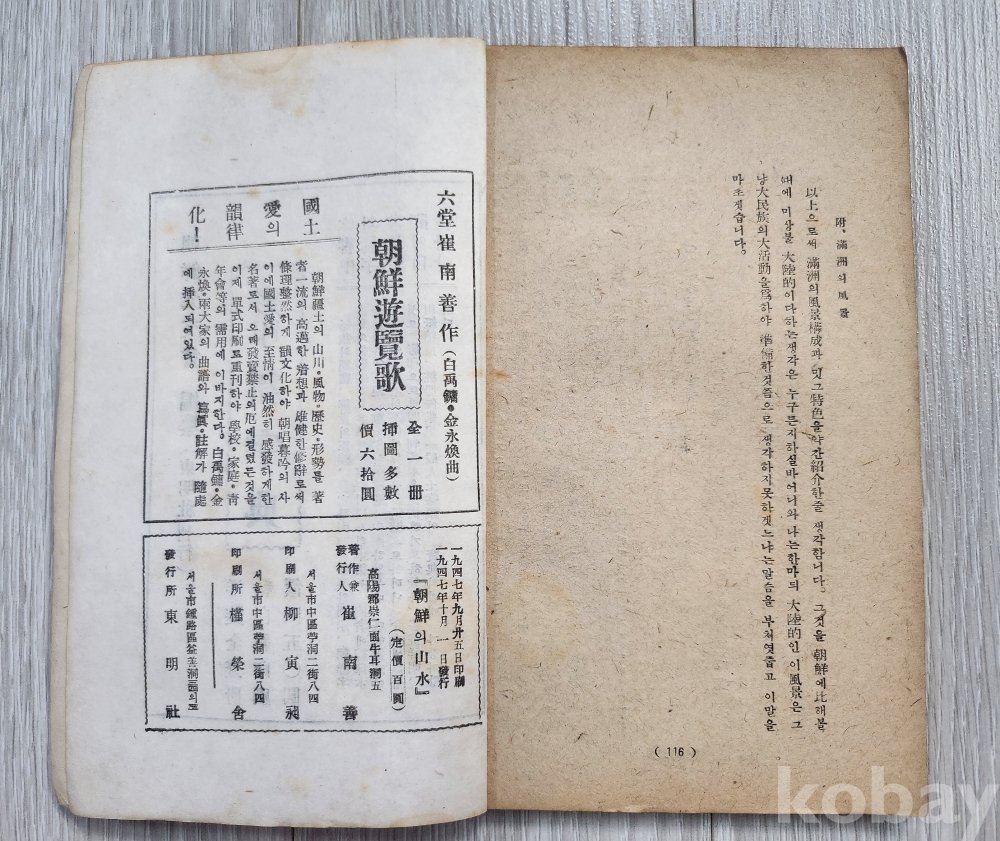 附、滿洲의 風景
以上으로써 滿洲의 風景構成과 및 그 特色을 약간 紹介한줄 생각합니다. 그것을 朝鮮에 比해볼
때에 미상불 大陸的이다 하는 생각은 누구든지 하실바어니와 나는 한마듸 大陸的인 이 風景은 그
냥 大民族의 大活動을 爲하야 準備한것쯤으로 생각하지못하겟느냐는 말슴을 부처엿줍고 이말을
마초겟습니다.
( 116 )
六堂 崔南善 作 (白禹鏞・金永煥曲)
朝鮮遊覽歌
全一冊
揷圖多數
價六拾圓
國土
愛의
韻律
化!
朝鮮疆土의 山川・風物・歷史・形勢를 著
者一流의 高邁한 着想과 雄健한 修辭로써
條理整然하게 韻文化하야 朝唱暮吟의 사
이에 國土愛의 至情이 油然히 感發하게한
名著로서 오래 發賣禁止의 厄에 걸렷든것을
이제 單式印刷로 重刊하야 學校・家庭・靑
年會等의 需用에 이바지한다. 白禹鏞・金
永煥・兩大家의 曲譜와 寫眞・註解가 隨處
에 揷入되여있다.
一九四七年九月廿五日印刷
一九四七年十月一日發行
『朝鮮의山水』
(定價百圓)
高陽郡崇仁面牛耳洞五
著作兼
發行人 崔南善
서울市中區苧洞二街八四
印刷人 柳寅昶
서울市中區苧洞二街八四
印刷所 槿榮舍
서울市鍾路區益善洞
發行所 東明社
kobay